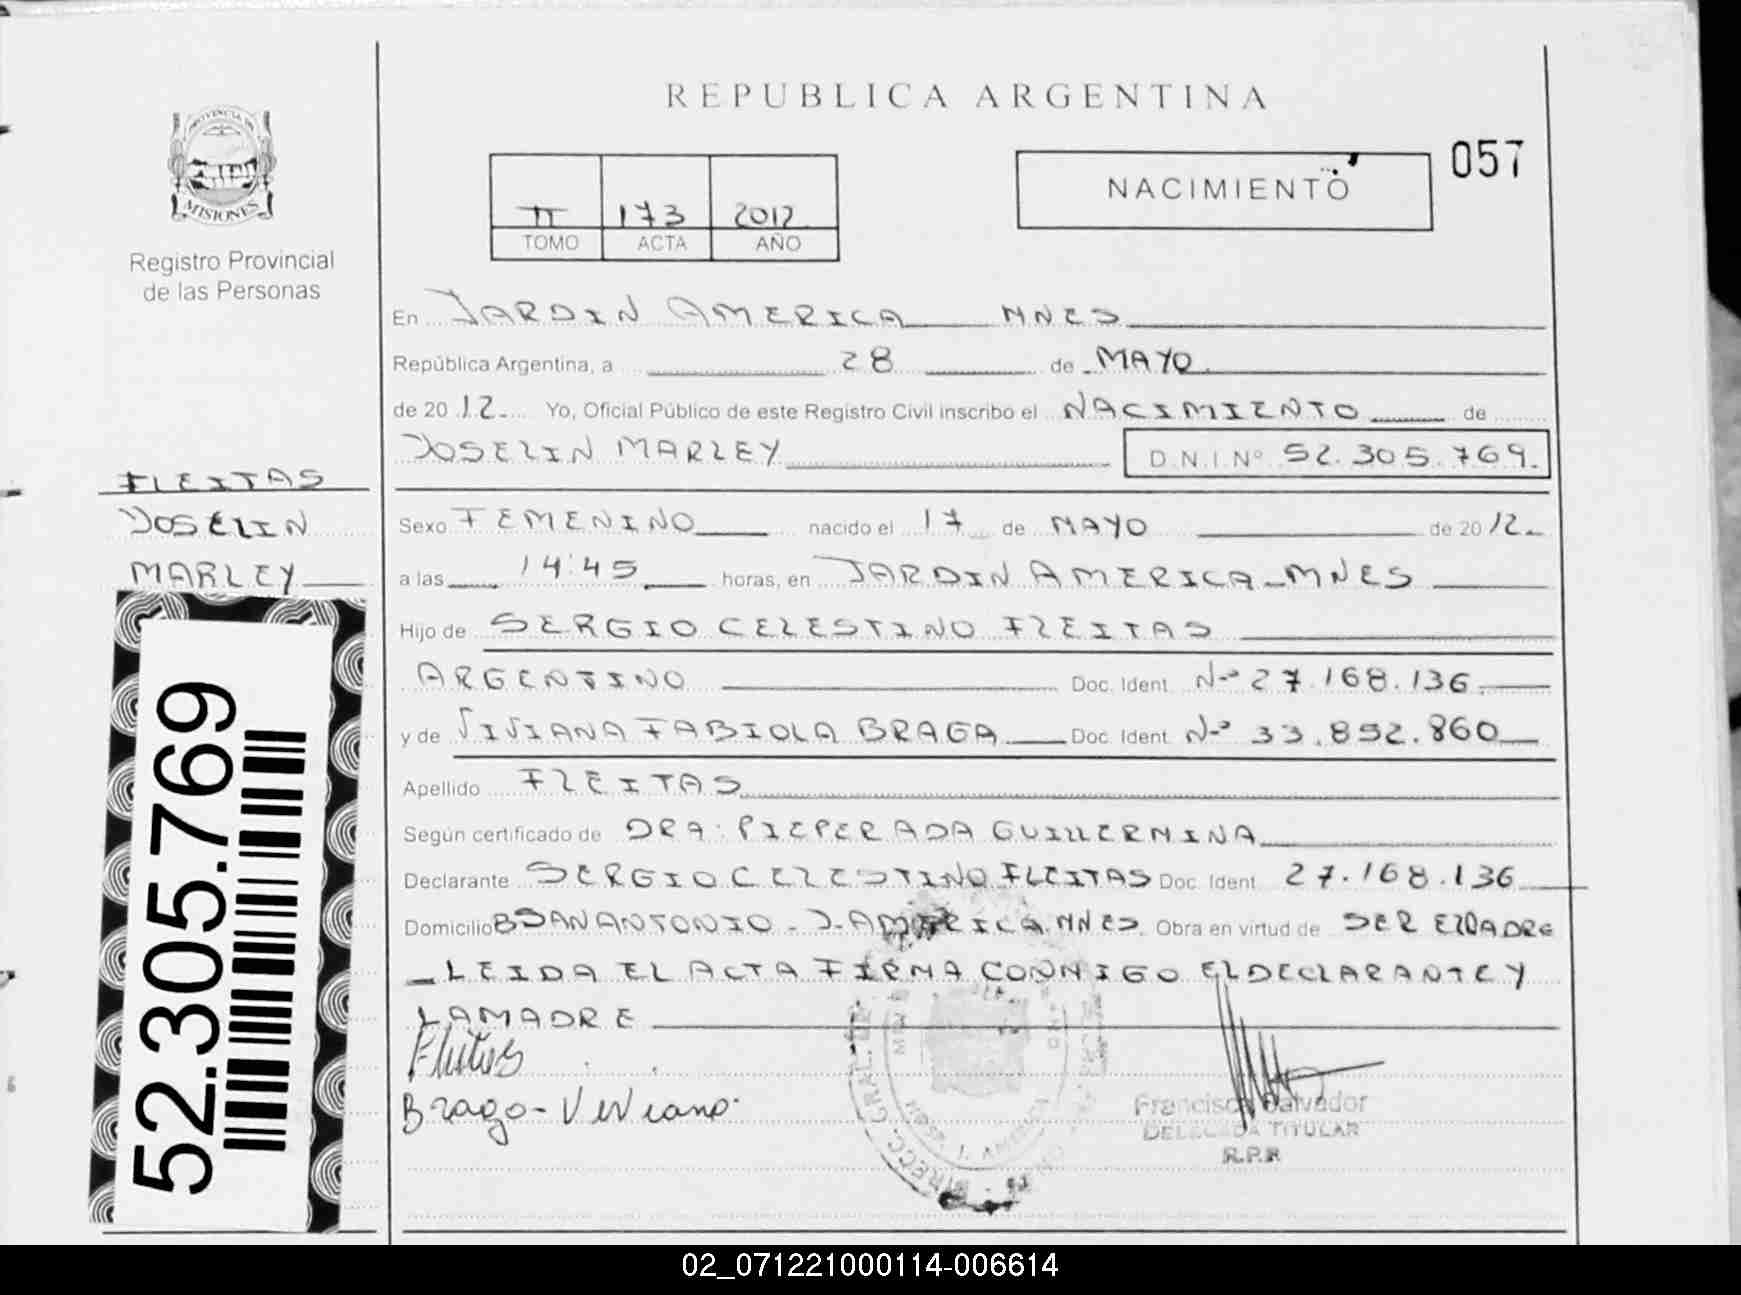 REPUBLICA ARGENTINA
PROVINCIA DE
MISIONES
Registro Provincial
de las Personas
II 173 2012
TOMO ACTA AÑO
NACIMIENTO
057
En JARDIN AMERICA MNES
República Argentina, a 28 de MAYO
de 2012 Yo, Oficial Público de este Registro Civil inscribo el NACIMIENTO de
JOSELIN MARLEY D.N.I.Nº 52.305.769.
FLEITAS
JOSELIN
MARLEY
52.305.769
Sexo FEMENINO nacido el 17 de MAYO de 2012
a las 14:45 horas, en JARDIN AMERICA-MNES
Hijo de SERGIO CELESTINO FLEITAS
ARGENTINO Doc. Ident. Nº 27.168.136
y de VIVIANA FABIOLA BRAGA Doc. Ident. Nº 33.892.860
Apellido FLEITAS
Según certificado de DRA: PIEPER ADA GUILLERMINA
Declarante SERGIO CELESTINO FLEITAS Doc. Ident. 27.168.136
Domicilio Bº SAN ANTONIO - J. AMERICA MNES. Obra en virtud de SER EL PADRE
LEIDA EL ACTA FIRMA CONMIGO EL DECLARANTE Y
LA MADRE
Fleitas
Braga - Viviana
Francisco Salvador
DELEGADA TITULAR
R.P.P.
DIRECC. GRAL. DE
J. AMERICA
02_071221000114-006614